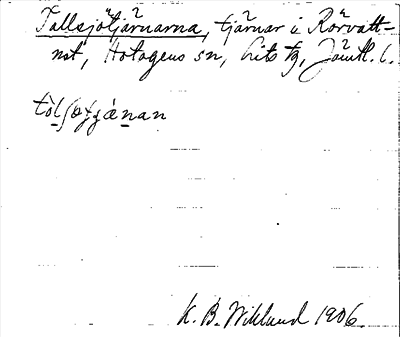 Tallsjötjärnarna, tjärnar i Rörvatt-
nst, Hotagens sn, Lits tg, Jämtl. l.
K. B. Wiklund 1906.